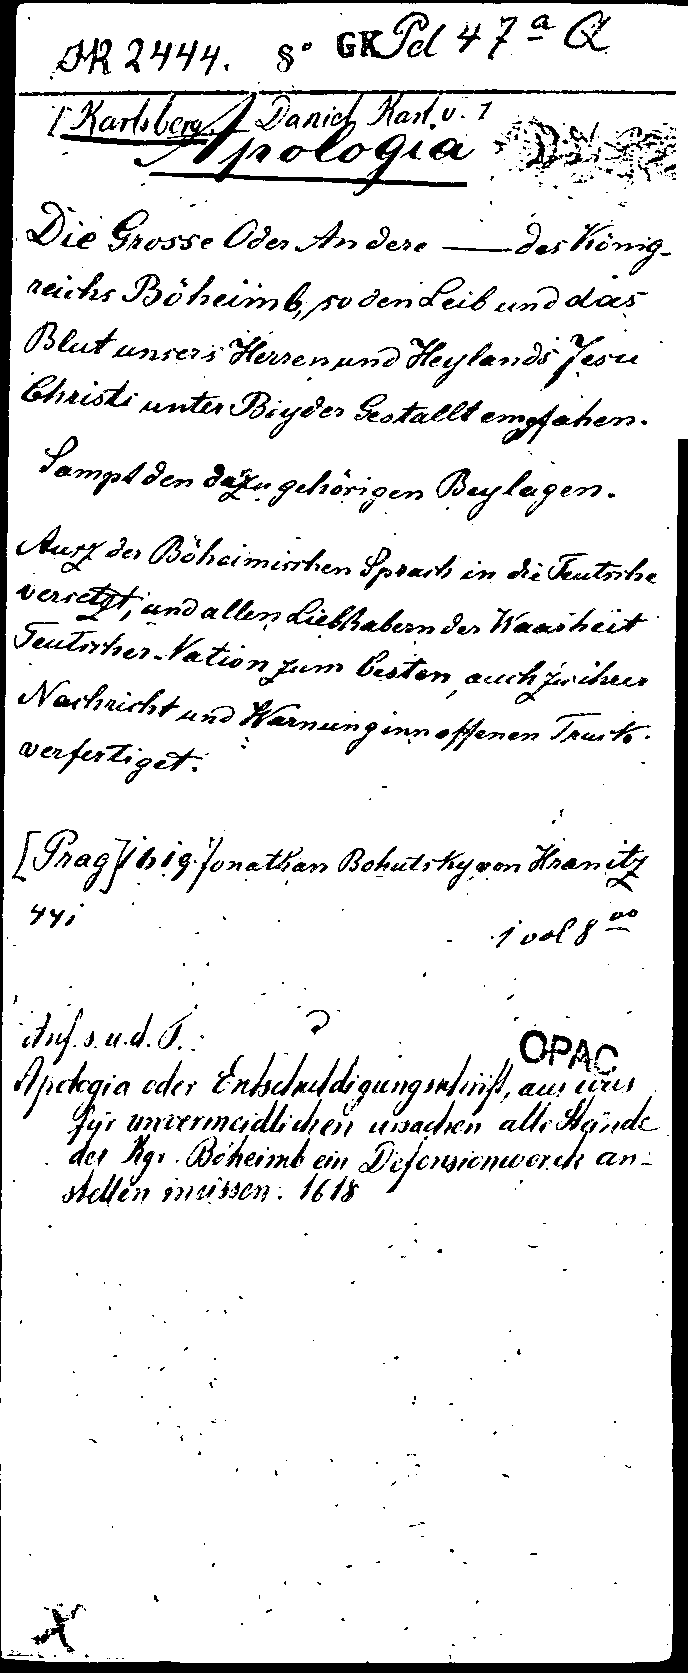 DR 2444. 8° GK Pd 47ª Q
[Karlsberg, Daniel Karl v.]
Apologia
Die Grosse Oder Andere — des König-
reichs Böheimb, so den Leib und das
Blut unsers Herren und Heylands Jesu
Christi unter Beyder Gestallt empfahen.
Sampt den dazu gehörigen Beylagen.
Ausz der Böheimischen Sprach in die Teutsche
versetzt, und allen Liebhabern der Waarheit
Teutscher Nation zum besten, auch zu ihrer
Nachricht und Warnung inn offenen Truck
verfertiget.
[Prag] 1619. Jonathan Bohutsky von Hranitz
441
1 vol 8°°
Anf. s. u. d. T.:
OPAC
Apologia oder Entschuldigungsschrift, aus was
für unvermeidlichen ursachen alle Stände
des Kgr. Böheimb ein Defensionwerck an-
stellen müssen. 1618